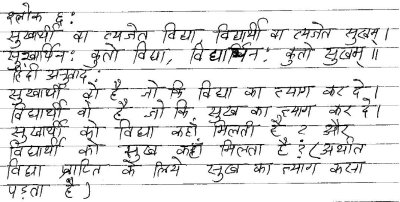 श्लोक ६:
सुखार्थी वा त्यजेत विद्या, विद्यार्थी वा त्यजेत सुखम्।
सुखार्थिन: कुतो विद्या, विद्यार्थिन: कुतो सुखम्॥
हिंदी अनुवाद:
सुखार्थी वो है जो कि विद्या का त्याग कर दे।
विद्यार्थी वो है जो कि, सुख का त्याग कर दे।
सुखार्थी को विद्या कहाँ मिलती है ? और
विद्यार्थी को सुख कहाँ मिलता है ? (अर्थात
विद्या प्राप्ति के लिये सुख का त्याग करना
पड़ता है)